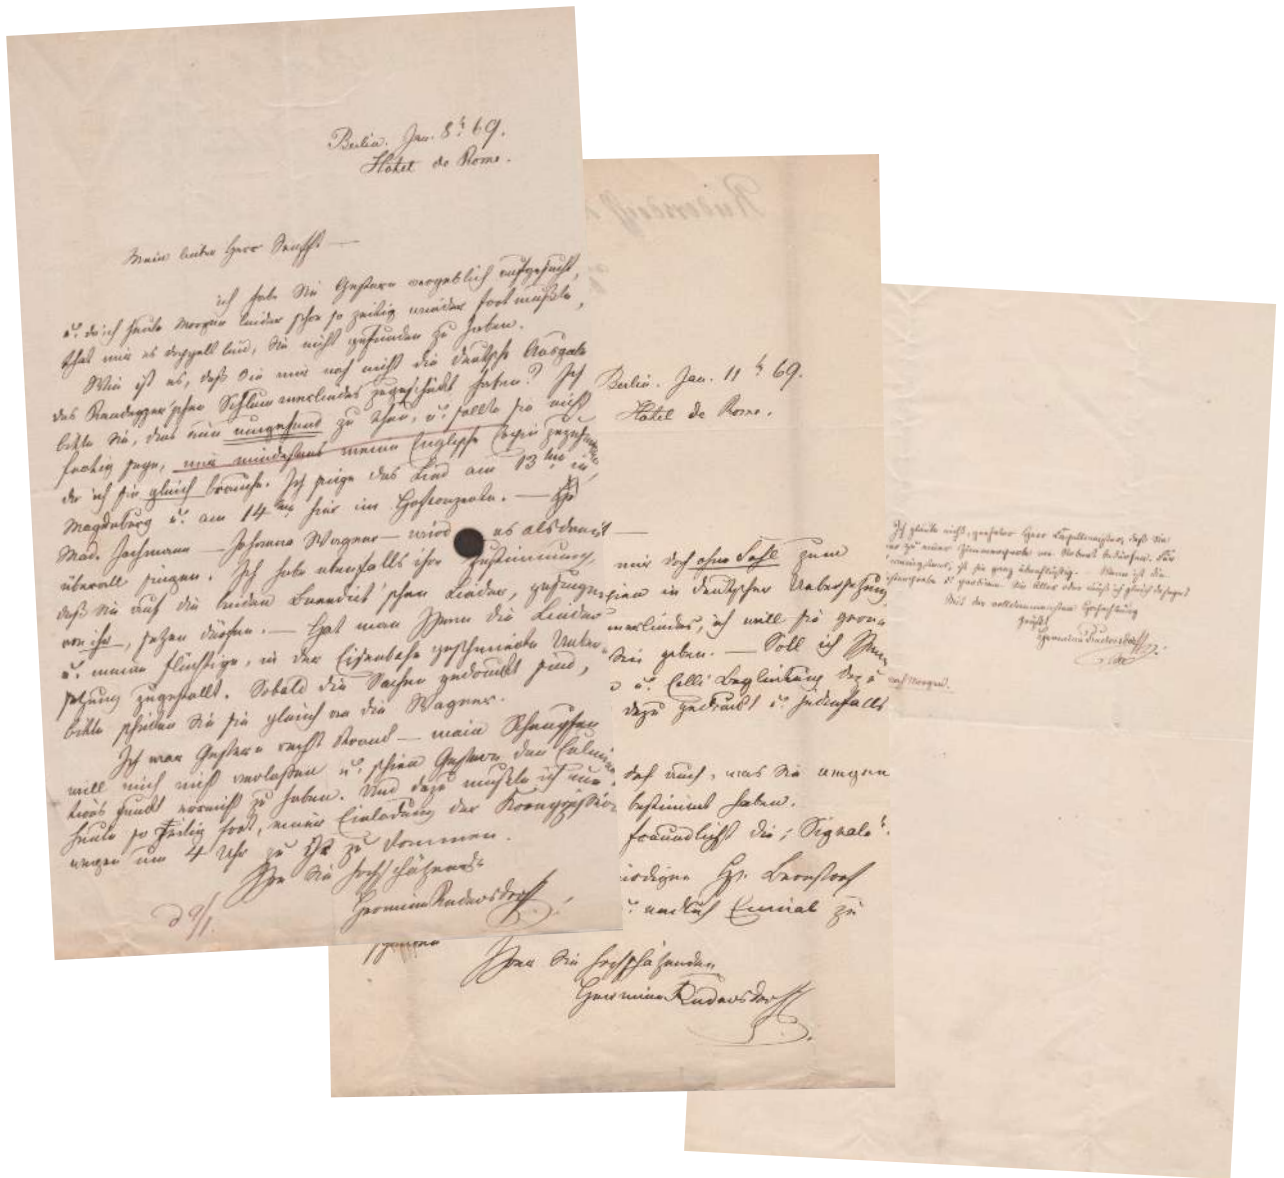 Berlin. Jan. 8t. 69.
Hôtel de Rome.
Mein lieber Herr Senff! —
ich habe Sie Gestern vergeblich aufgesucht,
u. da ich heute Morgen leider schon so zeitig wieder fort mußte,
that mir es doppelt leid, Sie nicht gefunden zu haben.
Wie ist es, daß Sie mir noch nicht die deutsche Ausgabe
des Randegger'schen Schlummerliedes zugeschickt haben? Ich
bitte Sie, das nun umgehend zu thun, u. sollte sie nicht
fertig sein, mir mindestens meine Englische Copie zuzusenden,
da ich sie gleich brauche. Ich singe das Lied am 13ten in
Magdeburg u. am 14ten hier im Hofconzerte. —
Mad. Jachmann — Johanna Wagner — wird es alsdann
überall singen. Ich habe ebenfalls ihre Zustimmung,
daß Sie auf die beiden Benedict'schen Lieder, gesungen
von ihr, setzen dürfen. — Hat man Ihnen die Lieder
u. meine flüchtige, in der Eisenbahn geschmierte Ueber-
setzung zugestellt. Sobald die Sachen gedruckt sind,
bitte schicken Sie sie gleich an die Wagner.
Ich war Gestern recht krank — mein Schnupfen
will mich nicht verlassen u. schien Gestern den Culmina-
tions Punkt erreicht zu haben. Und dazu mußte ich nun
heute so zeitig fort, einer Einladung der Kronprinzessin
wegen um 4 Uhr zu ihr zu kommen.
Ihre Sie hochschätzende
Hermine Rudersdorff
d 9/1.
Berlin. Jan. 11t. 69.
Hôtel de Rome.
mir doch ohne Fehl zum
in deutscher Uebersetzung
ich will sie gerne
geben. — Soll ich Ihnen
u. Celli Begleitung dazu
dazu gedruckt u. jedenfalls
doch auch, was Sie wegen
bestimmt haben.
freundlichst die "Signale".
Hr. Bernstorf
u. endlich Einmal zu
Ihre Sie hochschätzende
Hermine Rudersdorff
Ich glaube nicht, geehrter Herr Kapellmeister, daß Sie
zu einer Zimmerprobe bedürfen. Für
ist sie ganz überflüssig. — Wenn ich die
Mit der vollkommensten Hochachtung
Hermine Rudersdorff